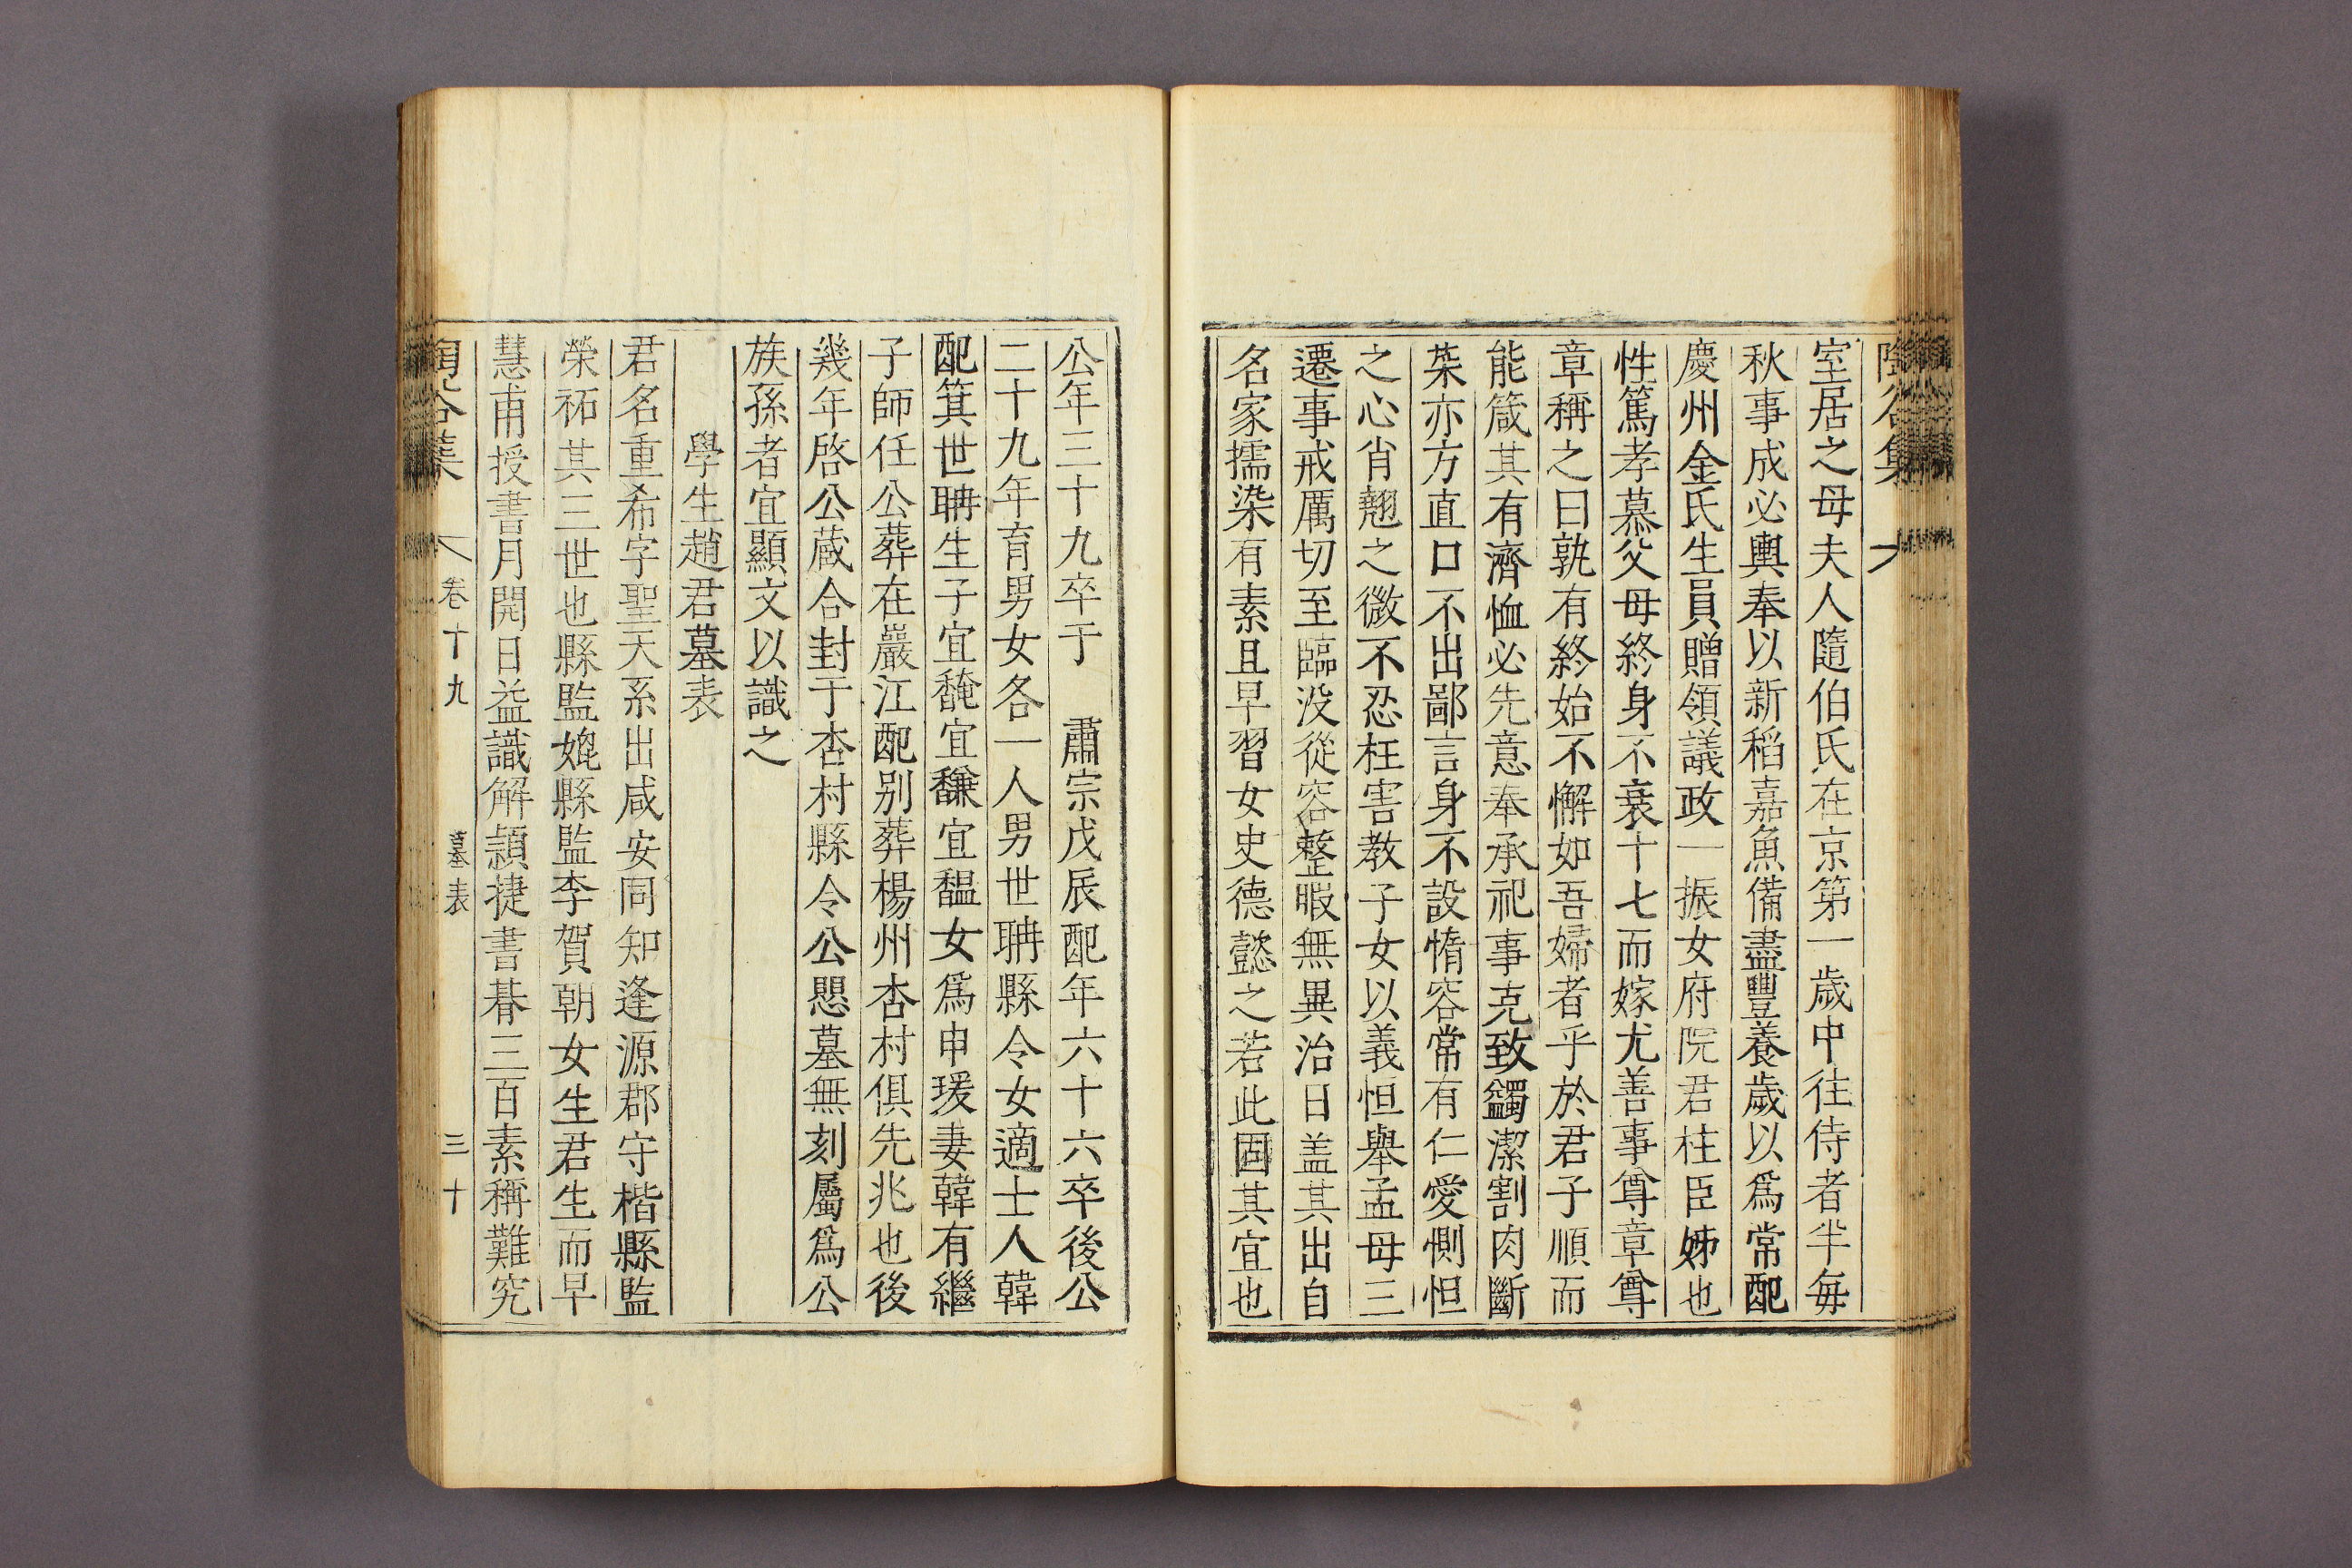 室居之母夫人隨伯氏在京第一歲中往侍者半每
秋事成必輿奉以新稻嘉魚備盡豐養歲以爲常配
慶州金氏生員贈領議政一振女府院君柱臣姊也
性篤孝慕父母終身不衰十七而嫁尤善事尊章尊
章稱之曰孰有終始不懈如吾婦者乎於君子順而
能箴其有濟恤必先意奉承祀事克致蠲潔割肉斷
菜亦方直口不出鄙言身不設惰容常有仁愛惻怛
之心肖翹之微不忍枉害教子女以義怛舉孟母三
遷事戒厲切至臨没從容整暇無異治日盖其出自
名家擩染有素且早習女史德懿之若此固其宜也
公年三十九卒于 肅宗戊辰配年六十六卒後公
二十九年育男女各一人男世聃縣令女適士人韓
配箕世聃生子宜馣宜馦宜馧女爲申瑗妻韓有繼
子師任公葬在嚴江配别葬楊州杏村俱先兆也後
幾年啓公蔵合封于杏村縣令公愳墓無刻屬爲公
族孫者宜顯文以識之
學生趙君墓表
君名重希字聖天系出咸安同知逢源郡守楷縣監
榮祏其三世也縣監娶縣監李賀朝女生君生而早
慧甫授書月開日益識解頴捷書朞三百素稱難究
陶谷集 卷十九 墓表 三十